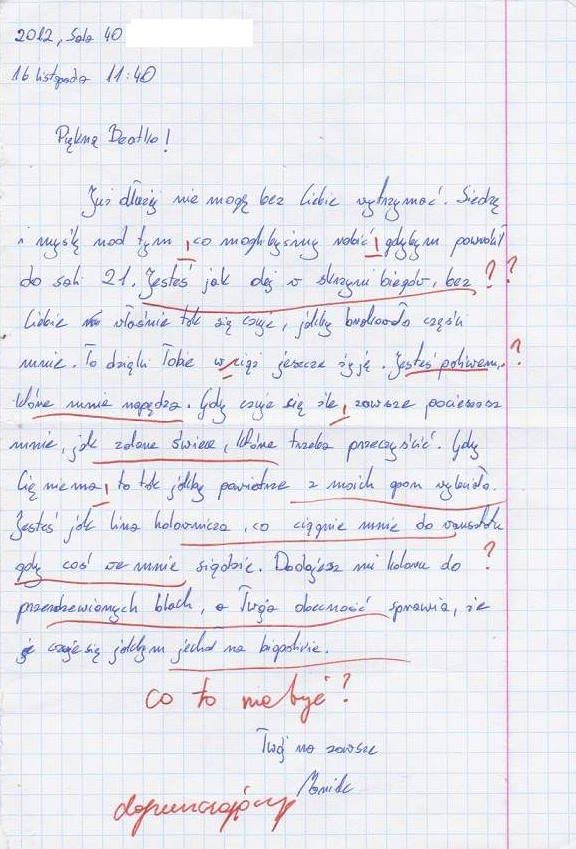 2012, Sala 40
16 listopada 11:40
Piękna Beatko!
Już dłużej nie mogę bez Ciebie wytrzymać. Siedzę
i myślę nad tym , co moglibyśmy robić , gdybym powrócił
do sali 21. Jesteś jak olej w skrzyni biegów, bez ? ?
Ciebie właśnie tak się czuję, jakby brakowało części
mnie. To dzięki Tobie wciąż jeszcze żyję. Jesteś paliwem, ?
które mnie napędza. Gdy czuję się źle , zawsze pocieszasz
mnie, jak zalane świece, które trzeba przeczyścić. Gdy
Cię nie ma , to tak jakby powietrze z moich opon wybuło.
Jesteś jak lina holownicza, co ciągnie mnie do warsztatu
gdy coś we mnie siądzie. Dodajesz mi koloru do ?
przerdzewionych blach, a Twoja obecność sprawia, że
czuję się jakbym jechał na biopaliwie.
co to ma być?
Twój na zawsze
dopuszczający